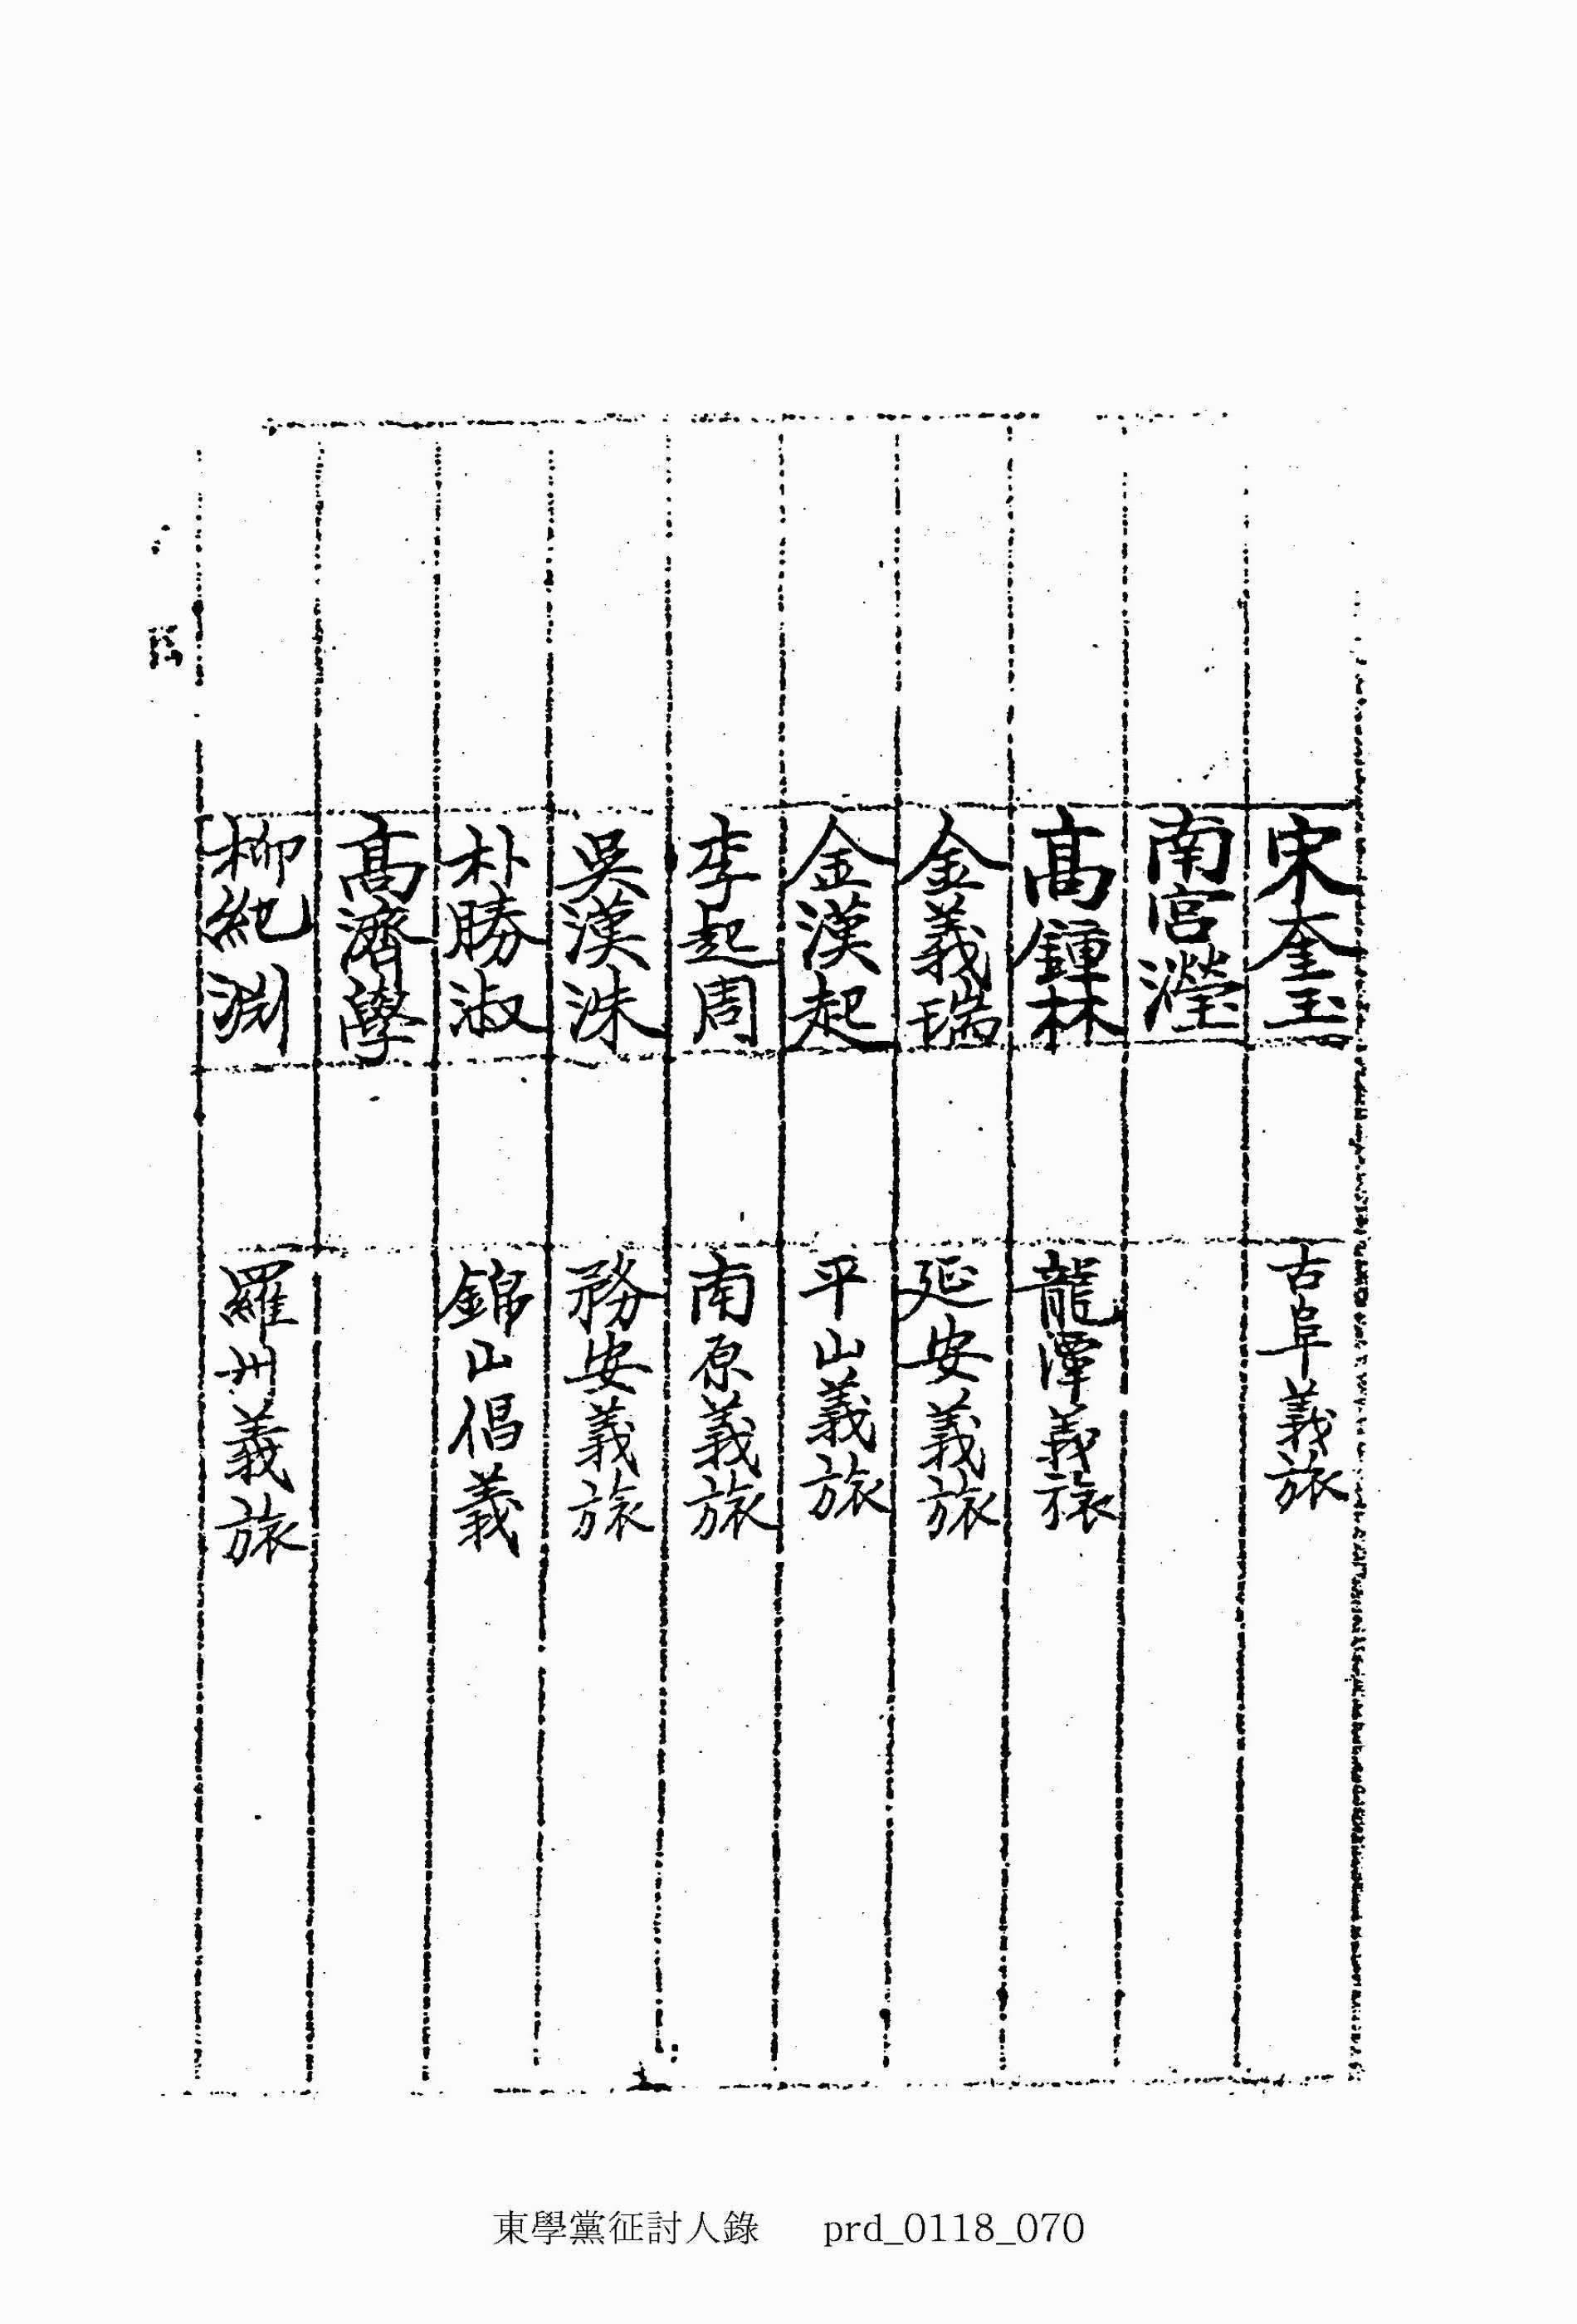 宋奎玉 古阜義旅
南宮瀅
高鍾林 龍潭義旅
金義瑞 延安義旅
金漢起 平山義旅
李起周 南原義旅
吳漢洙 務安義旅
朴勝淑 錦山倡義
高濟學
柳紀淵 羅州義旅
東學黨征討人錄 prd_0118_070